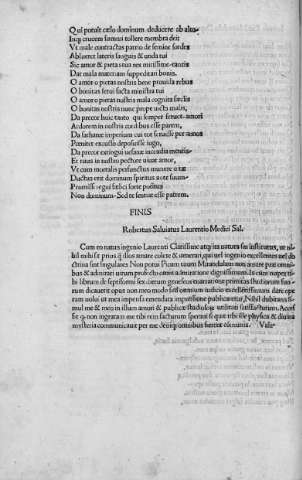 Qui potuit cælo dominum deducere ab alto
Inq; crucem summi tollere membra dei:
Vt male contractas patrio de semine sordes
Ablueret lateris sanguis & unda tui
Sic amor & pietas tua rex mitissime
Dat mala materiam suppeditare bonis.
O amor o pietas nostris bene prouida rebus
O bonitas serui facta ministra tui
O amor o pietas nostris male cognita seclis
O bonitas nostris nunc prope uicta malis,
Da precor huic tanto qui semper feruet amori
Ardorem in nostris cordibus esse parem,
Da sathanæ imperium cui tot seruisse per annos
Pœnitet excusso deposuisse iugo,
Da precor extingui uesanæ incendia mentis
Et tuus in nostro pectore uiuat amor,
Vt cum mortalis perfunctus munere uitæ
Ductus erit dominum spiritus ante suum
Promissi regni fælici sorte potitus
Non dominum: Sed te sentiat esse patrem.
FINIS
Robertus Saluiatus Laurentio Medici Sal.
Cum eo natus ingenio Laurenti Clarissime atq; ita natura sis institutus, ut ni-
hil mihi sit prius q; eos amare colere & uenerari, qui uel ingenio excellentes uel do
ctrina sunt singulares Non potui Picum tuum Mirandulam non amare
& admirari uirum profecto omni admiratione dignissimum. Is cum nuper ti-
bi librum de septiformi sex dierum geneseos enarratione primitias studiorum suo-
rum dicauerit opus non meo modo sed omnium iudicio excellentissimum dare ope
ram uolui ut mea impensa emendata impressione publicaretur, Nihil dubitans si-
mul me & meo in illum amori & publicæ studiosorum utilitati satisfacturum. Acces
sit q; non ingratam me tibi rem facturum speraui si quæ tibi ille physica & diuina
mysteria communicauit per me deniq; omnibus fierent communia. Vale